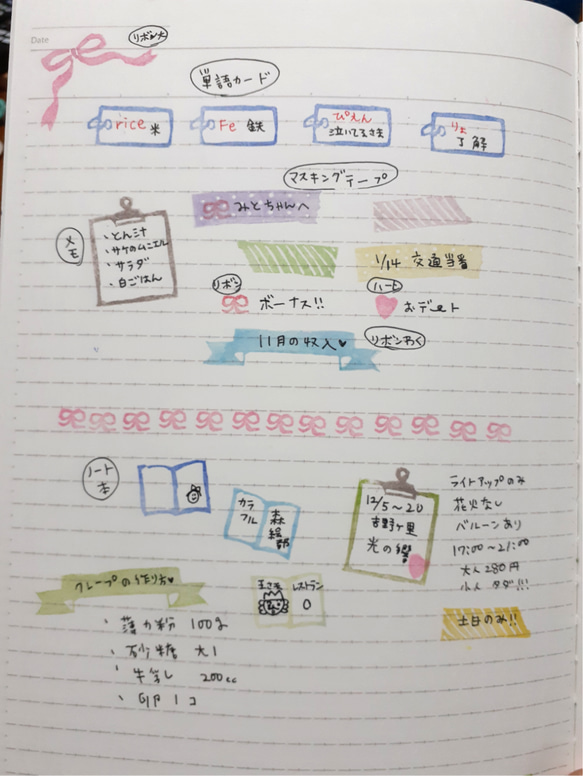 Date
リボン大
単語カード
rice 米
Fe 鉄
ぴえん
泣いてるさま
りょ
了解
マスキングテープ
メモ
、とん汁
、サケのムニエル
、サラダ
、白ごはん
みとちゃんへ
1/14 交通当番
リボン
ボーナス!!
ハート
おデート
11月の収入♥
リボンわく
ノート
本
カラフル
森絵都
12/5～20
吉野ヶ里
光の響
ライトアップのみ
花火なし
バルーンあり
17:00～21:00
大人 280円
小人 タダ!!!
土日のみ!!
クレープの作り方♥
王さま
レストラン
、薄力粉 100g
、砂糖 大1
、牛乳 200cc
、卵 1コ